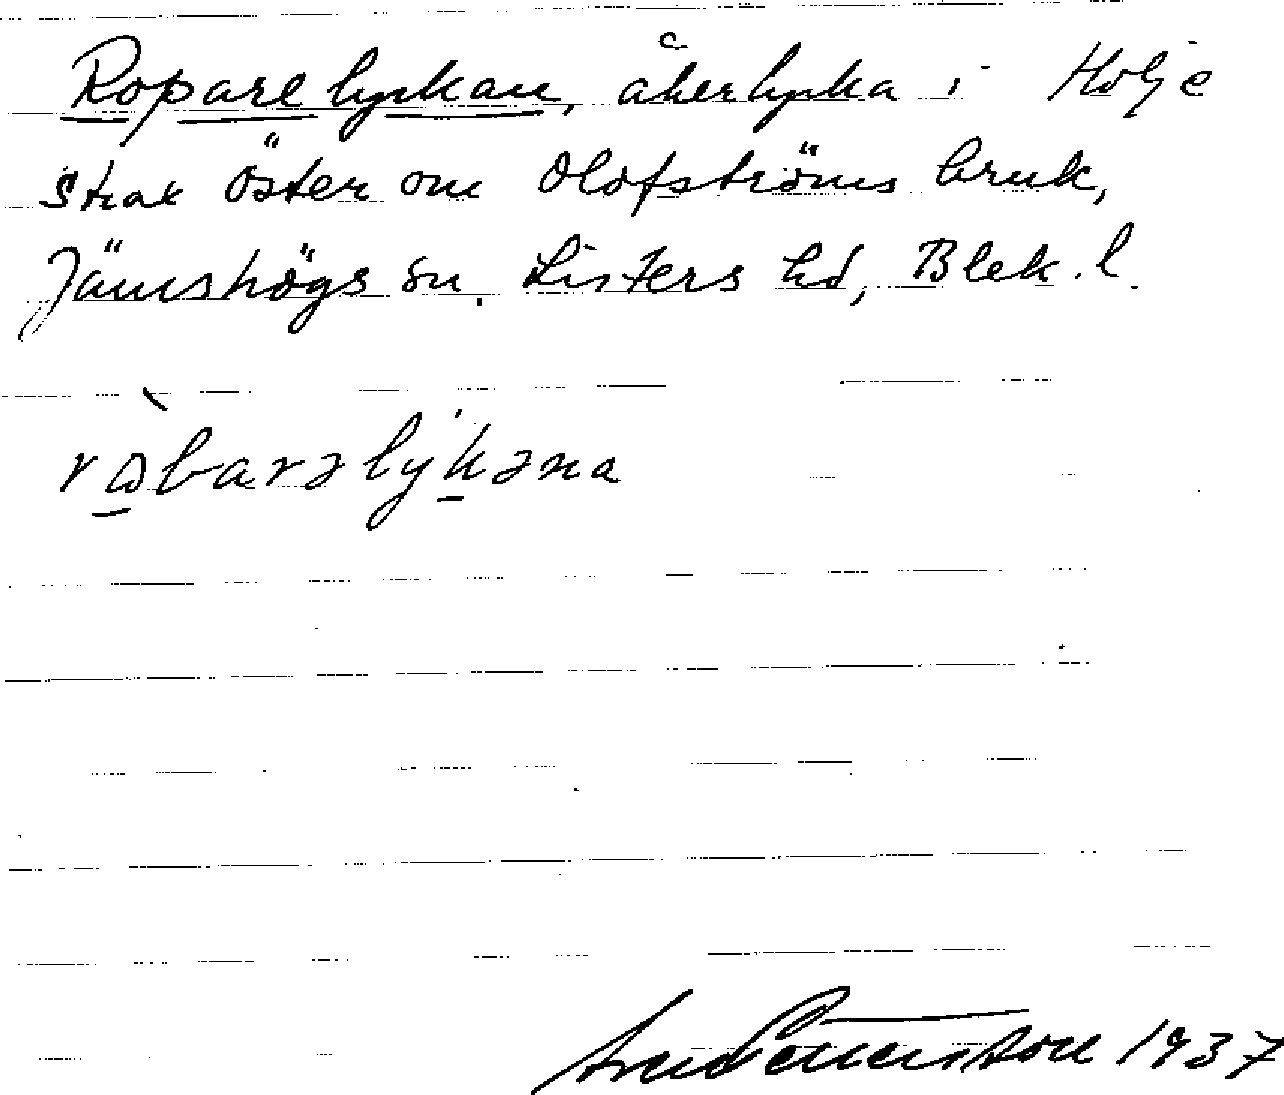 Roparelyckan, åkerlycka i Holje
strax öster om Olofströms bruk,
Jämshögs sn. Listers hd, Blek. l.
rɷ̀barəlykəna
1937